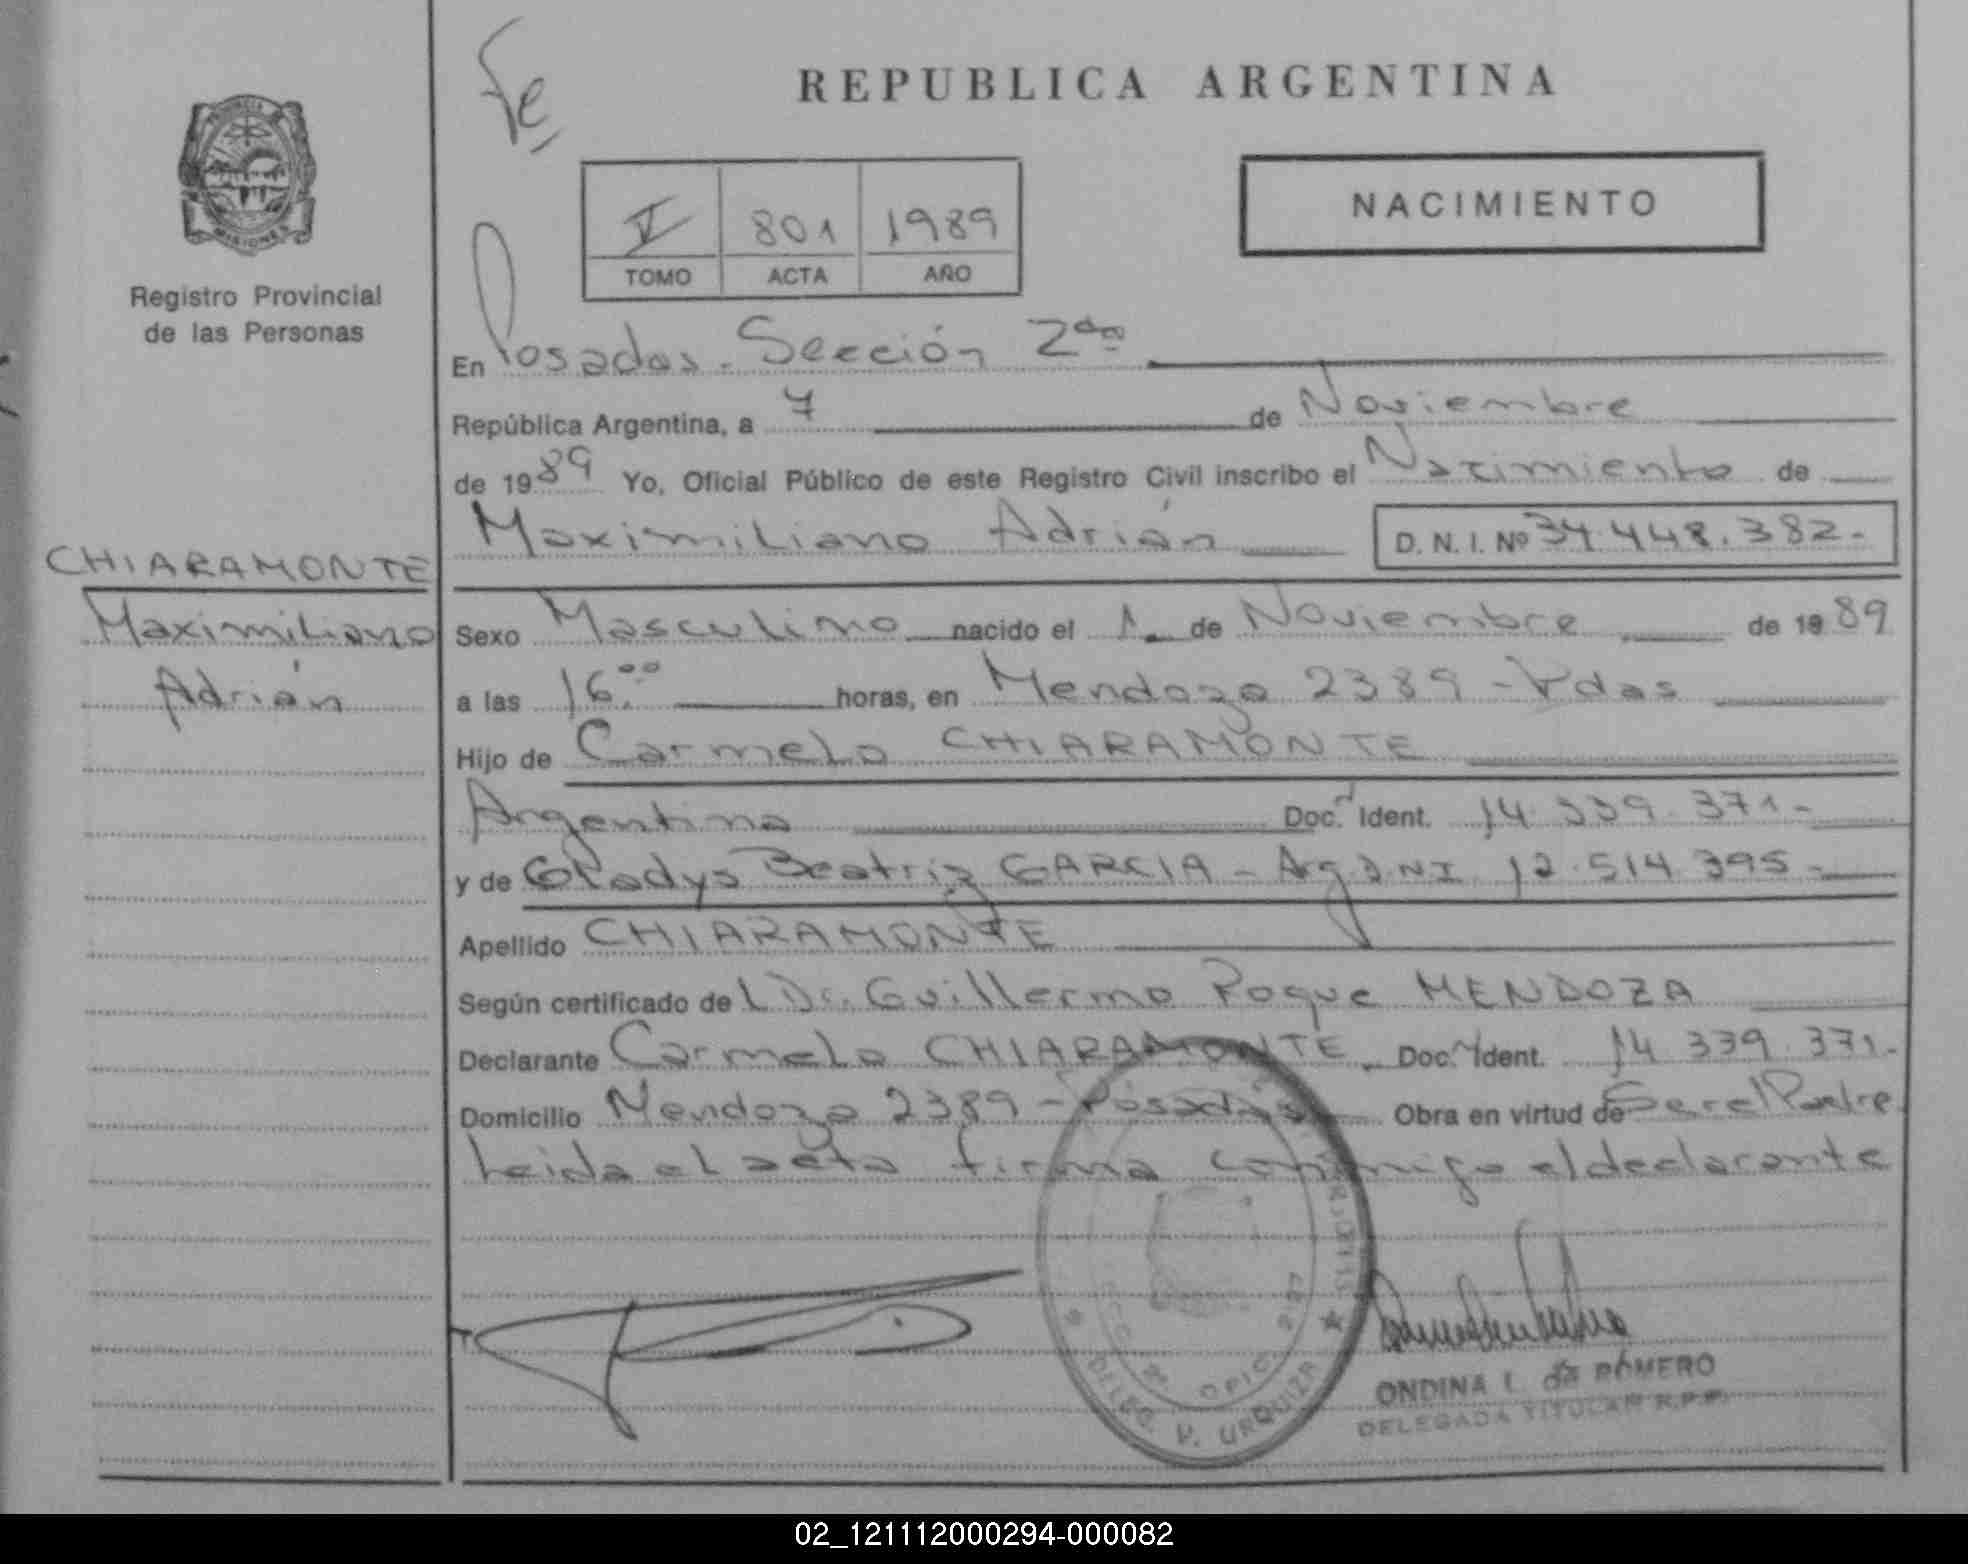 Fe
REPUBLICA ARGENTINA
NACIMIENTO
V 801 1989
TOMO ACTA AÑO
PROVINCIA
MISIONES
Registro Provincial
de las Personas
En Posadas. Sección 2da
República Argentina, a 7 de Noviembre
de 1989 Yo, Oficial Público de este Registro Civil inscribo el Nacimiento de
Maximiliano Adrián D. N. I. Nº 34.448.382-
CHIARAMONTE
Maximiliano
Adrián
Sexo Masculino nacido el 1 de Noviembre de 1989
a las 16.00 horas, en Mendoza 2389 - Pdas
Hijo de Carmelo CHIARAMONTE
Argentino Doc. Ident. 14.339.371-
y de Gladys Beatriz GARCIA - Arg DNI 12.514.395-
Apellido CHIARAMONTE
Según certificado del Dr. Guillermo Roque MENDOZA
Declarante Carmelo CHIARAMONTE Doc. Ident. 14.339.371-
Domicilio Mendoza 2389 - Posadas Obra en virtud de Ser el Padre
Leida el acta firma conmigo el declarante
DELEG. V. URQUIZA
OFIC.
ONDINA L. de ROMERO
DELEGADA TITULAR R.P.P.
02_121112000294-000082